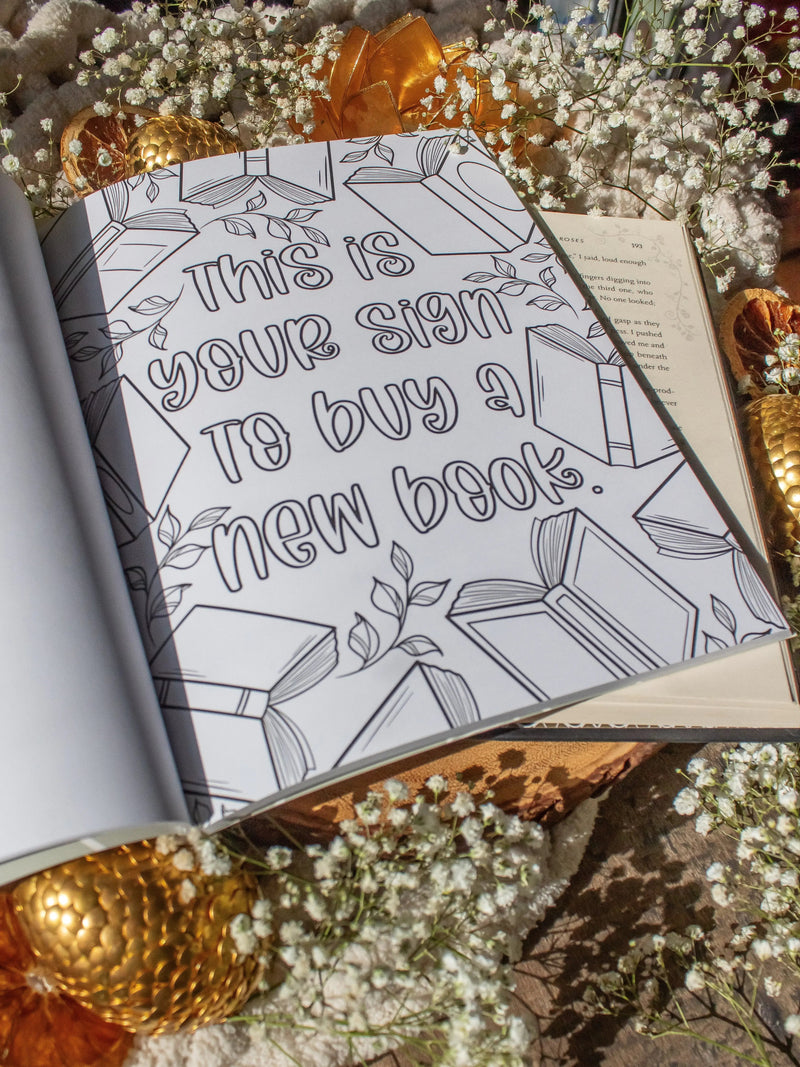 THIS IS
YOUR SIGN
TO BUY A
NEW BOOK.
ROSES 193
," I said, loud enough
fingers digging into
he third one, who
. No one looked;
gasp as they
ess. I pushed
ved me and
beneath
nder the
prod-
ever